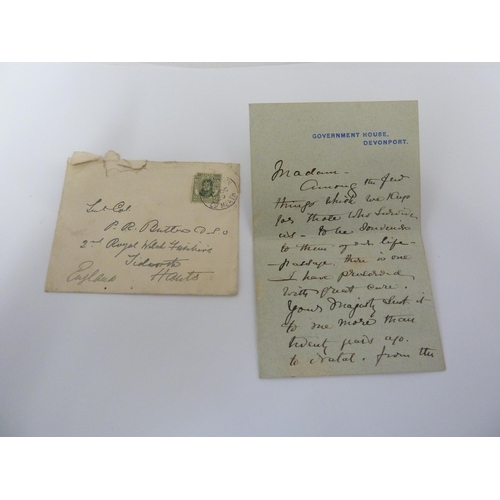 Lt Col
P. R. Butler D.S.O
2nd Royal Welch Fusiliers
Tidworth
England Hants
GOVERNMENT HOUSE,
DEVONPORT.
Madam -
Among the few
things which we keep
for those who
to be
to them of our life-
-passage, there is one
I have preserved
with great care.
Your Majesty sent it
to me more than
twenty years ago.
to Natal. from the